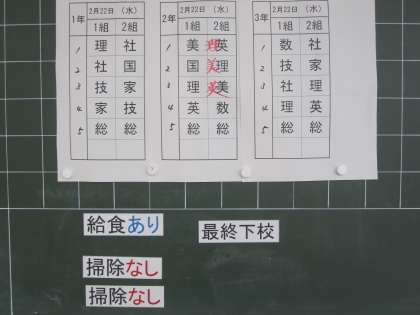 1年 2月22日 (水) 2年 2月22日 (水) 3年 2月22日 (水)
1組 2組 1組 2組 1組 2組
1 理 社 1 美 英 1 数 社
2 社 国 2 国 理 2 技 家
3 技 家 3 理 美 3 社 理
4 家 技 4 英 数 4 理 英
5 総 総 5 総 総 5 総 総
給食あり
最終下校
掃除なし
掃除なし